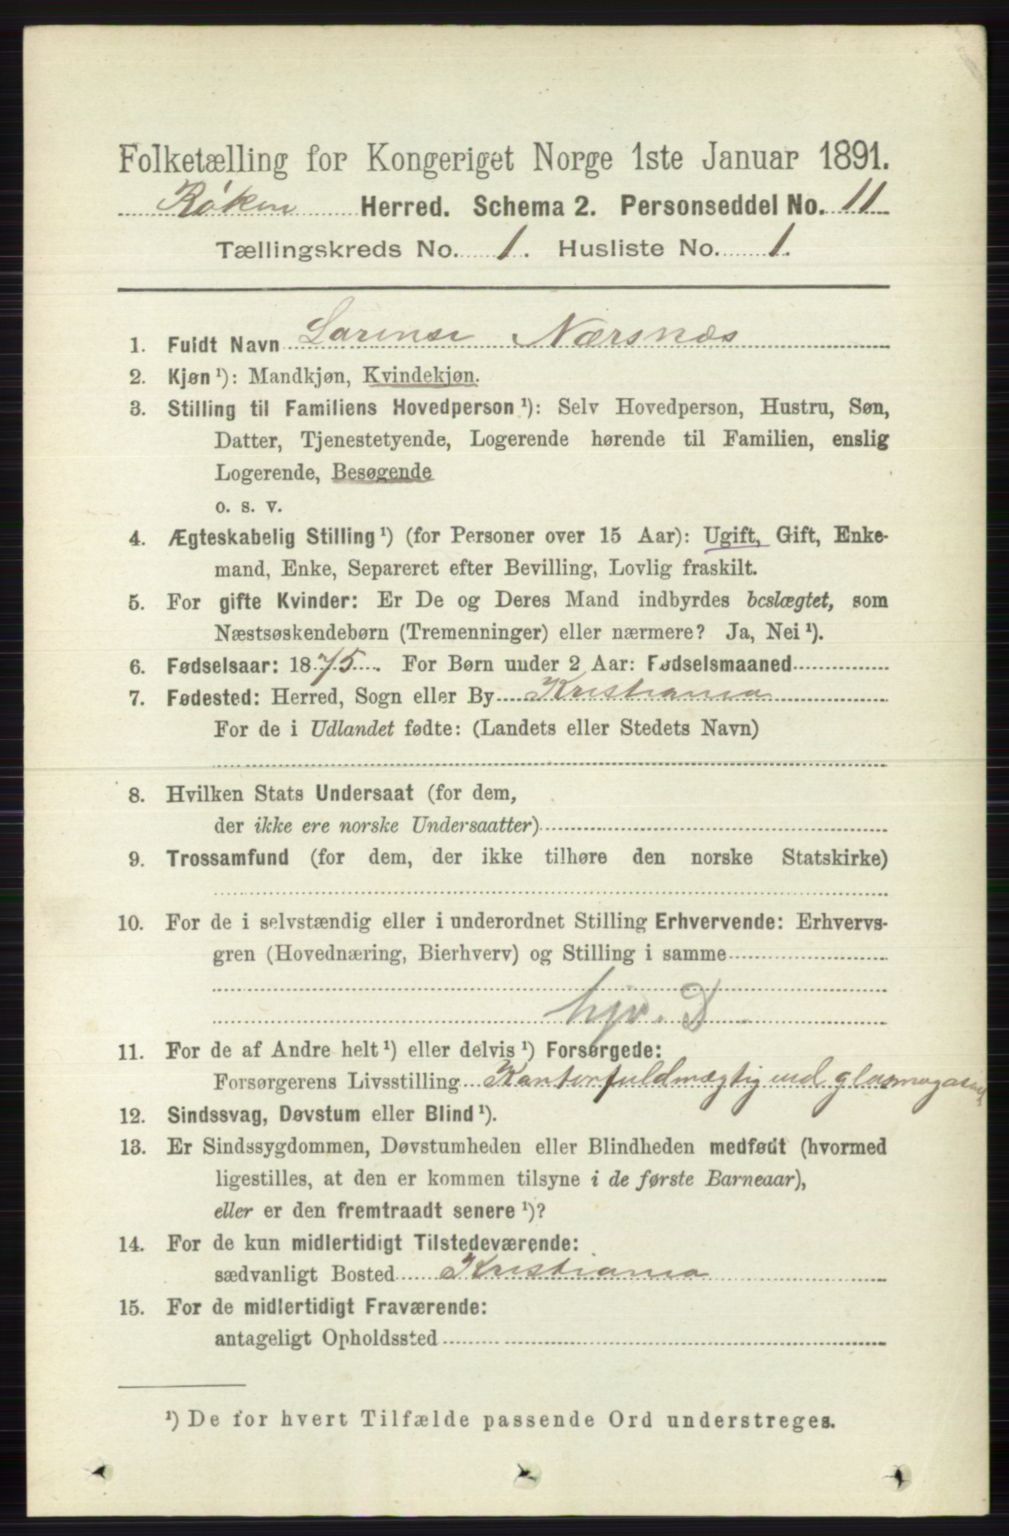 Folketælling for Kongeriget Norge 1ste Januar 1891.
Røken Herred. Schema 2. Personseddel No. 11
Tællingskreds No. 1. Husliste No. 1.
1. Fuldt Navn Nærsnæs
2. Kjøn ¹): Mandkjøn, Kvindekjøn.
3. Stilling til Familiens Hovedperson ¹): Selv Hovedperson, Hustru, Søn,
Datter, Tjenestetyende, Logerende hørende til Familien, enslig
Logerende, Besøgende
o. s. v.
4. Ægteskabelig Stilling ¹) (for Personer over 15 Aar): Ugift, Gift, Enke-
mand, Enke, Separeret efter Bevilling, Lovlig fraskilt.
5. For gifte Kvinder: Er De og Deres Mand indbyrdes beslægtet, som
Næstsøskendebørn (Tremenninger) eller nærmere? Ja, Nei ¹).
6. Fødselsaar: 1875. For Børn under 2 Aar: Fødselsmaaned
7. Fødested: Herred, Sogn eller By Kristiania
For de i Udlandet fødte: (Landets eller Stedets Navn)
8. Hvilken Stats Undersaat (for dem,
der ikke ere norske Undersaatter)
9. Trossamfund (for dem, der ikke tilhøre den norske Statskirke)
10. For de i selvstændig eller i underordnet Stilling Erhvervende: Erhvervs-
gren (Hovednæring, Bierhverv) og Stilling i samme
hjv. D
11. For de af Andre helt ¹) eller delvis ¹) Forsørgede:
Forsørgerens Livsstilling Kontorfuldmægtig ved
12. Sindssvag, Døvstum eller Blind ¹).
13. Er Sindssygdommen, Døvstumheden eller Blindheden medfødt (hvormed
ligestilles, at den er kommen tilsyne i de første Barneaar),
eller er den fremtraadt senere ¹)?
14. For de kun midlertidigt Tilstedeværende:
sædvanligt Bosted Kristiania
15. For de midlertidigt Fraværende:
antageligt Opholdssted
¹) De for hvert Tilfælde passende Ord understreges.